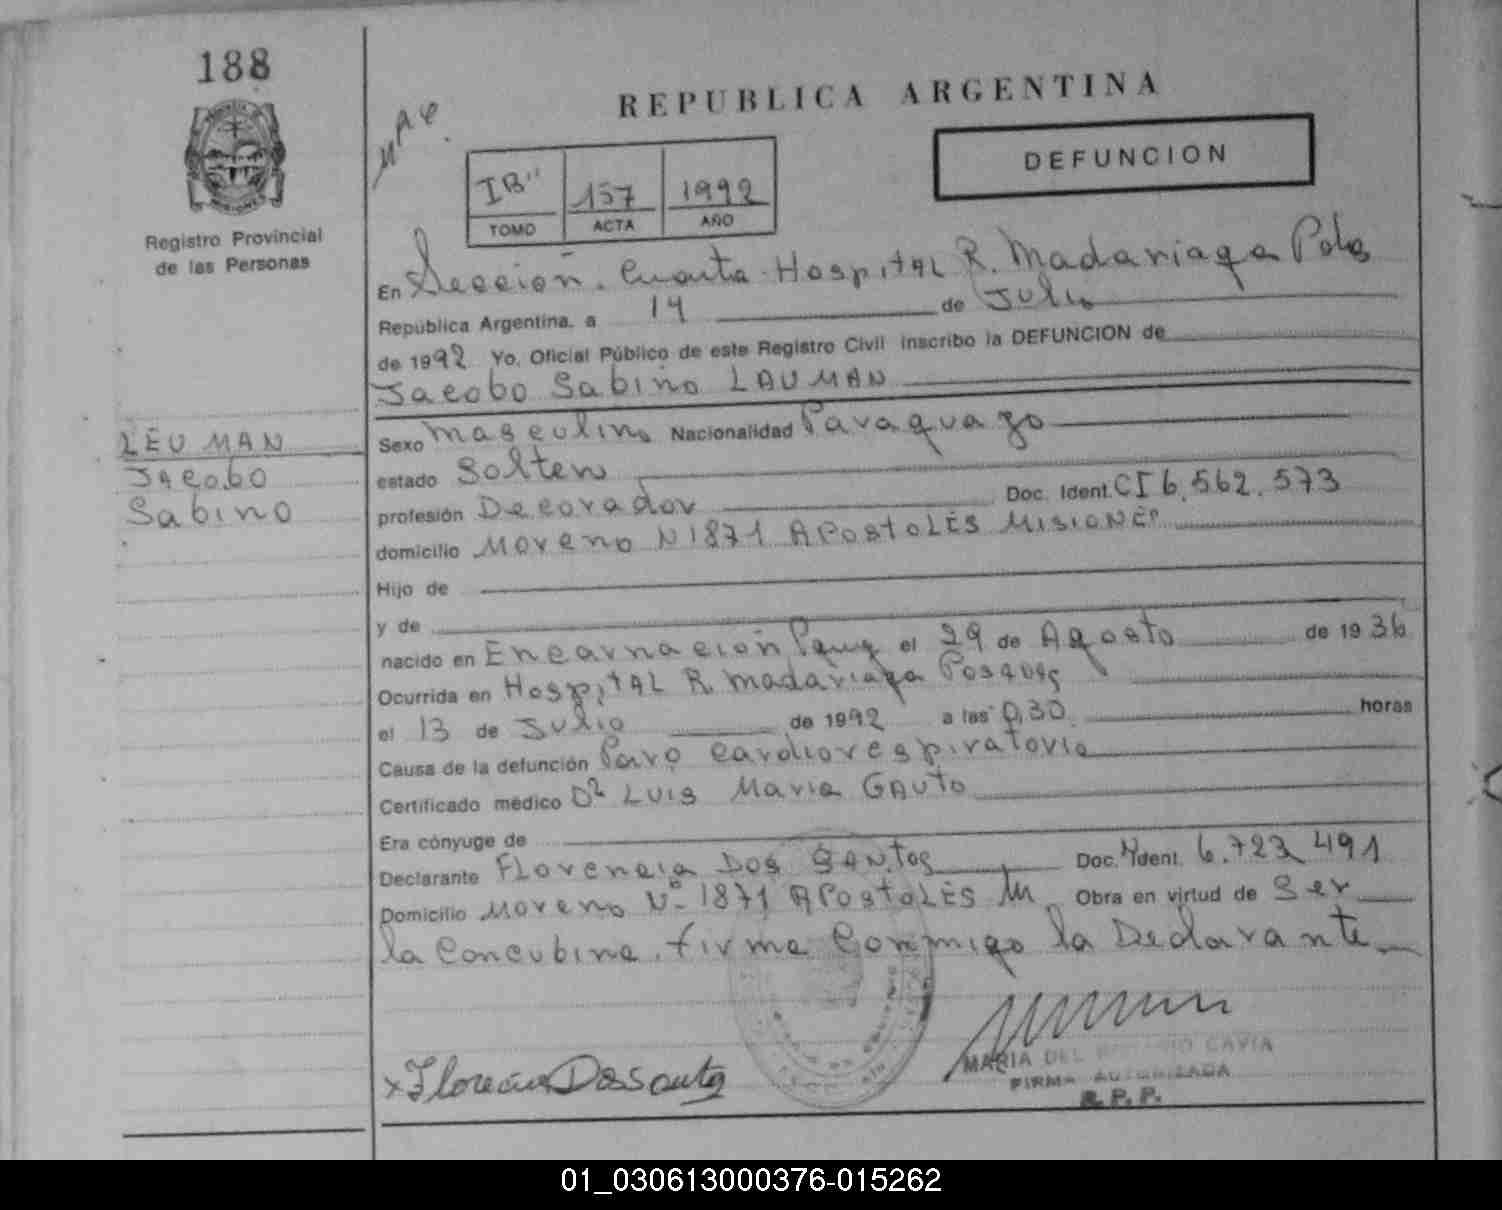 188
REPUBLICA ARGENTINA
DEFUNCION
IB" 157 1992
TOMO ACTA AÑO
Registro Provincial
de las Personas
En Sección Cuarta Hospital R. Madariaga Pdas
República Argentina, a 14 de Julio
de 1992 Yo, Oficial Público de este Registro Civil inscribo la DEFUNCION de
Jacobo Sabino LAUMAN
LEUMAN
Jacobo
Sabino
Sexo masculino Nacionalidad Paraguayo
estado Soltero
profesión Decorador Doc. Ident. CI 6.562.573
domicilio Moreno N 1871 APostoLES MISIONES
Hijo de
y de
nacido en Encarnación Pguy el 29 de Agosto de 1936
Ocurrida en HospitAL R. madariaga Posadas
el 13 de Julio de 1992 a las 0,30 horas
Causa de la defunción Paro Cardiorespiratorio
Certificado médico Dr LUIS Maria GAUTO
Era cónyuge de
Declarante FLorencia DOS SANTOS Doc. Ident. 6.723.491
Domicilio Moreno Nº 1871 APostoLES M Obra en virtud de Ser
la Concubina. firma Conmigo la Declarante
x Florencia Dossantos
MARIA DEL ROSARIO CAVIA
FIRMA AUTORIZADA
R. P. P.
01_030613000376-015262